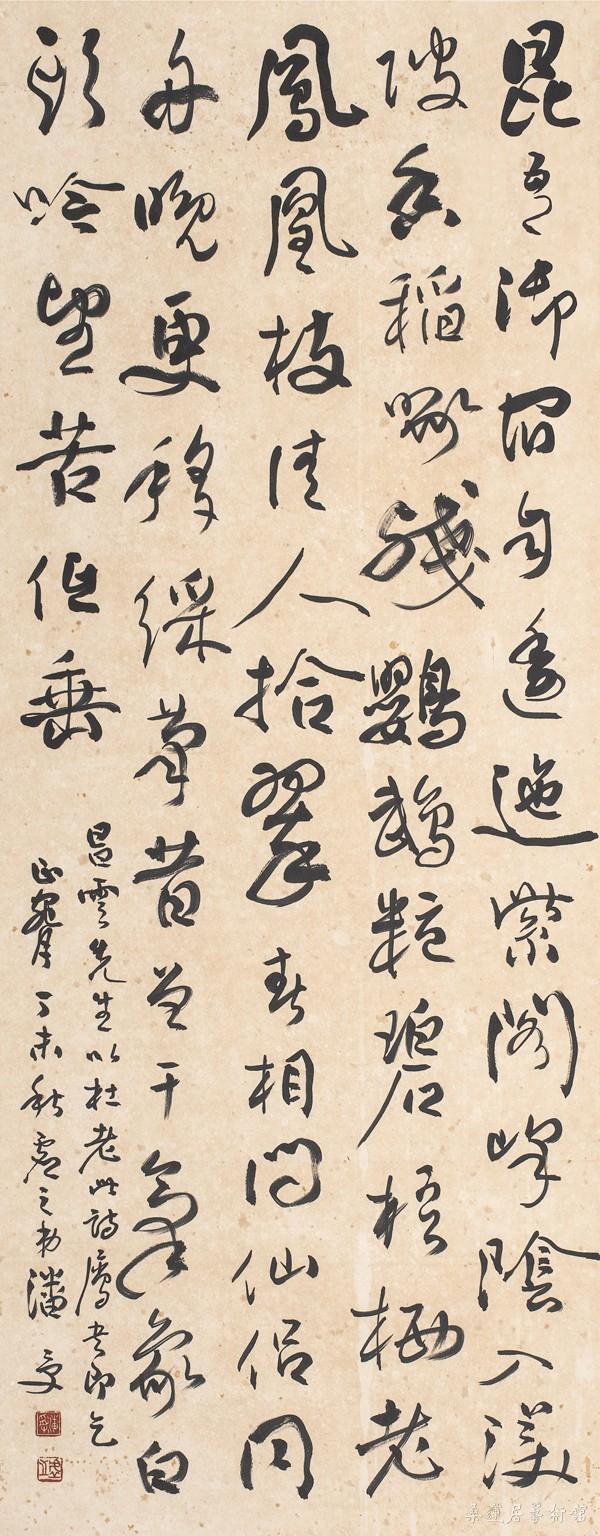 昆吾御宿自逶迤紫閣峰陰入渼
陂香稻啄殘鸚鵡粒碧梧栖老
鳳凰枝佳人拾翠春相問仙侶同
舟晚更移綵筆昔曾干氣象白
頭吟望苦低垂
昌雲先生以杜老此詩屬書即乞
正 丁未秋虛之 潘受
桑蓮居藝術館